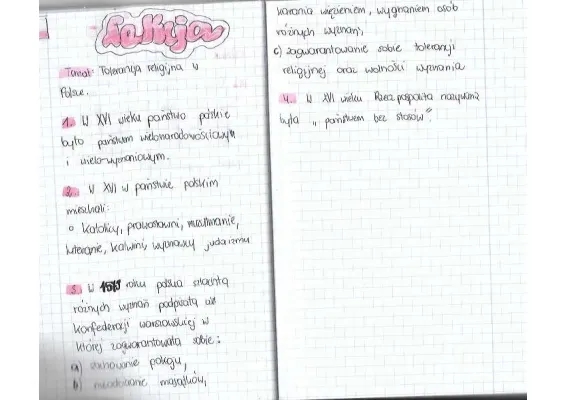 Lekcja
Temat: Tolerancja religijna w
Polsce.
1. W XVI wieku państwo polskie
było państwem wielonarodowościowym
i wielo-wyznaniowym.
2. W XVI w państwie polskim
mieszkali:
o Katolicy, prawosławni, muzułmanie,
luteranie, kalwini, wyznawcy judaizmu
3. W roku polska szlachta
różnych wyznań podpisała akt
konfederacji warszawskiej w
której zagwarantowała sobie:
a) zachowanie pokoju,
b) majątków,
karania więzieniem, wygnaniem osób
różnych wyznań,
c) zagwarantowanie sobie tolerancji
religijnej oraz wolności wyznania
4. W XVI wieku Rzeczpospolita nazywana
była „państwem bez stosów".